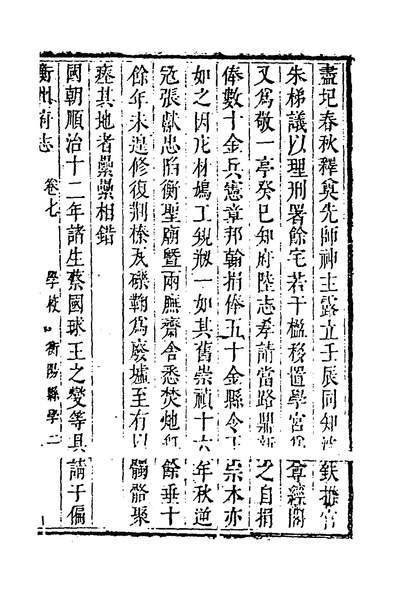 盡圮春秋釋奠先師神主露立壬辰同知沈鈇攝官
朱梯議以理刑署餘宅若干楹移置學宮爲尊經閣
又爲敬一亭癸巳知府陸志孝請當路鼎新之自捐
俸數十金兵憲章邦翰捐俸五十金縣令王宗本亦
如之因庀材鳩工規恢一如其舊崇禎十六年秋逆
寇張獻忠陷衡聖廟暨兩廡齋舍悉焚炮煨餘垂十
餘年未遑修復荆榛瓦礫鞠爲廢墟至有以髑骼聚
瘞其地者纍纍相錯
國朝順治十二年諸生蔡國球王之變等具請于偏
衡州府志 卷七 學校 衡陽縣學 二